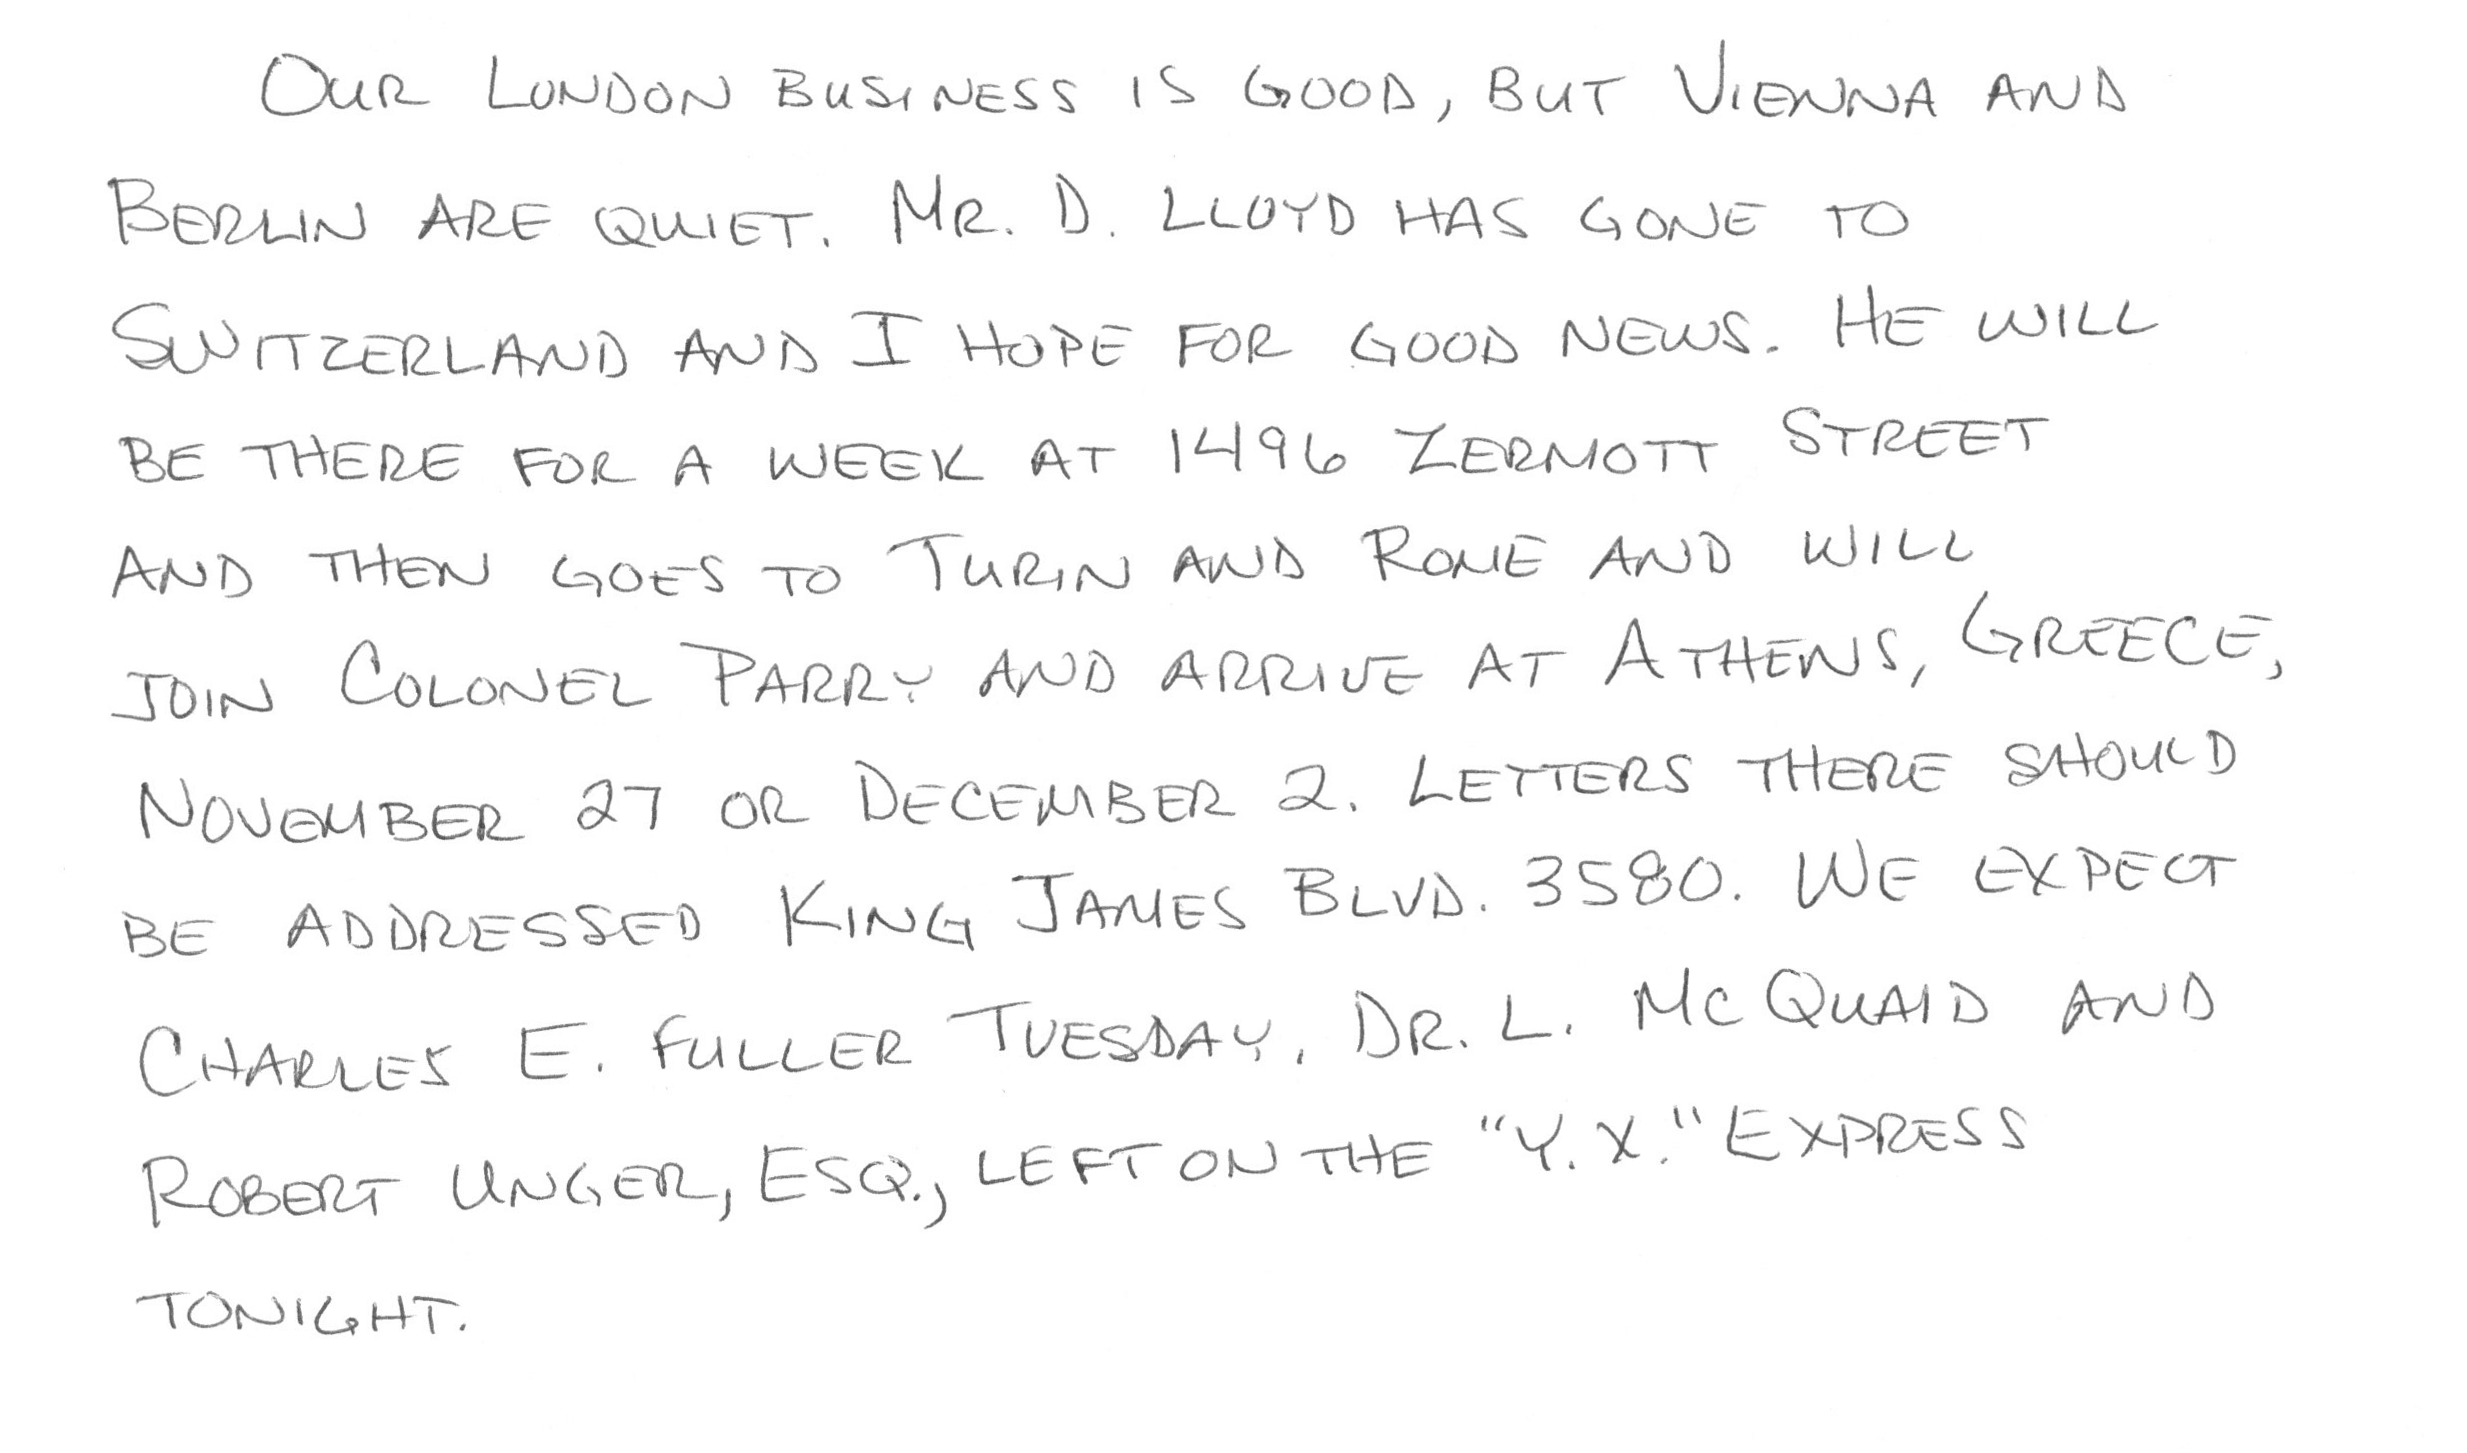 OUR LONDON BUSINESS IS GOOD, BUT VIENNA AND
BERLIN ARE QUIET. MR. D. LLOYD HAS GONE TO
SWITZERLAND AND I HOPE FOR GOOD NEWS. HE WILL
BE THERE FOR A WEEK AT 1496 ZERMOTT STREET
AND THEN GOES TO TURIN AND ROME AND WILL
JOIN COLONEL PARRY AND ARRIVE AT ATHENS, GREECE,
NOVEMBER 27 OR DECEMBER 2. LETTERS THERE SHOULD
BE ADDRESSED KING JAMES BLVD. 3580. WE EXPECT
CHARLES E. FULLER TUESDAY. DR. L. MC QUAID AND
ROBERT UNGER, ESQ., LEFT ON THE "Y.X." EXPRESS
TONIGHT.